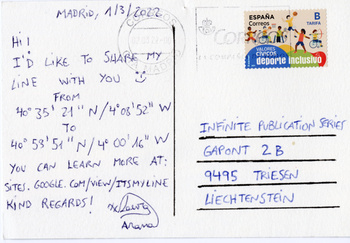 MADRID, 1/3/2022
HI!
I'D LIKE TO SHARE MY
LINE WITH YOU
FROM
40° 35' 21" N / 4° 08' 52" W
TO
40° 58' 51" N / 4° 00' 16" W
YOU CAN LEARN MORE AT:
SITES.GOOGLE.COM/VIEW/ITSMYLINE
KIND REGARDS!
Arana
ESPAÑA
Correos
B
TARIFA
VALORES
CÍVICOS
deporte inclusivo
INFINITE PUBLICATION SERIES
GAPONT 2B
9495 TRIESEN
LIECHTENSTEIN